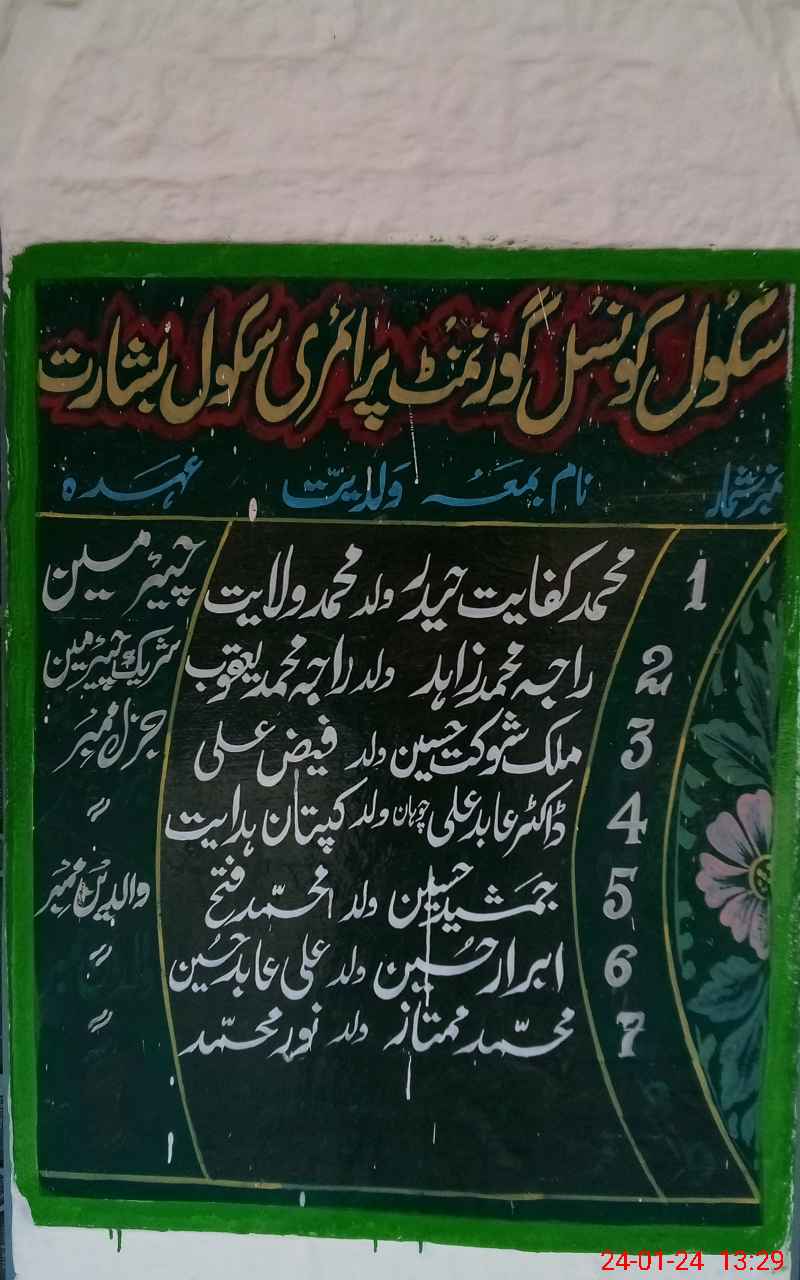 سکول کونسل گورنمنٹ پرائمری سکول بشارت
نمبر شمار نام بمعہ ولدیت عہدہ
1 محمد کفایت حیدر ولد محمد ولایت چیئرمین
2 راجہ محمد زاہد ولد راجہ محمد یعقوب شریک چیئرمین
3 ملک شوکت حسین ولد فیض علی جنرل ممبر
4 ڈاکٹر عابد علی چوہان ولد کپتان ہدایت 〃
5 جمشید حسین ولد محمد فتح والدین ممبر
6 ابرار حسین ولد علی عابد حسین 〃
7 محمد ممتاز ولد نور محمد 〃
24-01-24 13:29